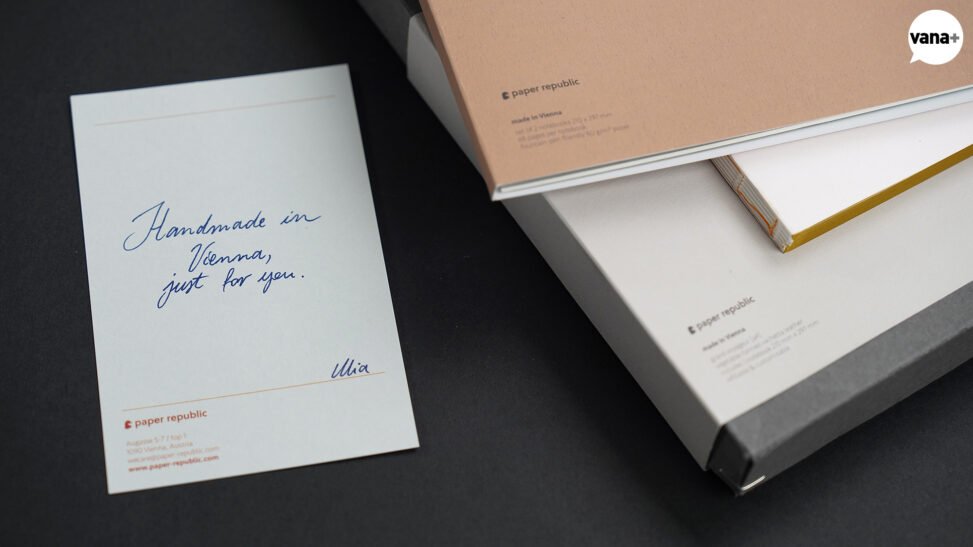 vana+
Handmade in
Vienna,
just for you.
Mia
paper republic
Augasse 5-7 / top 1
1090 Vienna, Austria
wecare@paper-republic.com
www.paper-republic.com
paper republic
made in Vienna
set of 2 notebooks 210 x 297 mm
pages per notebook
fountain pen-friendly g/m² paper
paper republic
made in Vienna
grand voyageur
leather
notebook 210 mm x 297 mm